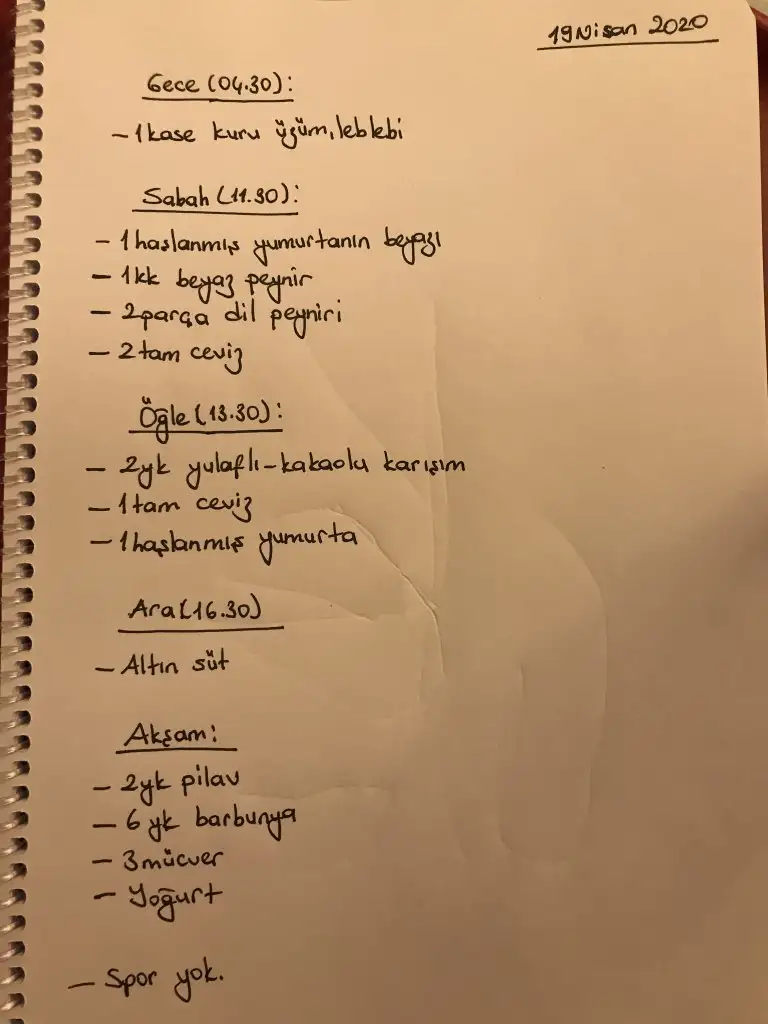 19 Nisan 2020
Gece (04.30):
- 1 kase kuru üzüm, leblebi
Sabah (11.30):
- 1 haşlanmış yumurtanın beyazı
- 1 kk beyaz peynir
- 2 parça dil peyniri
- 2 tam ceviz
Öğle (13.30):
- 2 yk yulaflı-kakaolu karışım
- 1 tam ceviz
- 1 haşlanmış yumurta
Ara (16.30)
- Altın süt
Akşam:
- 2 yk pilav
- 6 yk barbunya
- 3 mücver
- Yoğurt
- Spor yok.